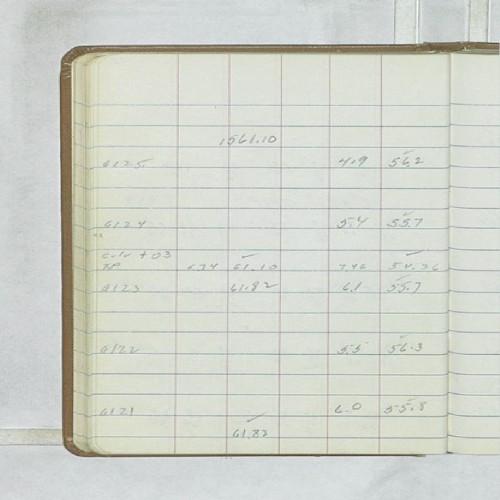 1561.10
6125 4.9 56.2
6124 5.4 55.7
+ 03
TP 6.74 61.10 7.46 54.36
6123 61.82 6.1 55.7
6122 5.5 56.3
6121 6.0 55.8
61.82